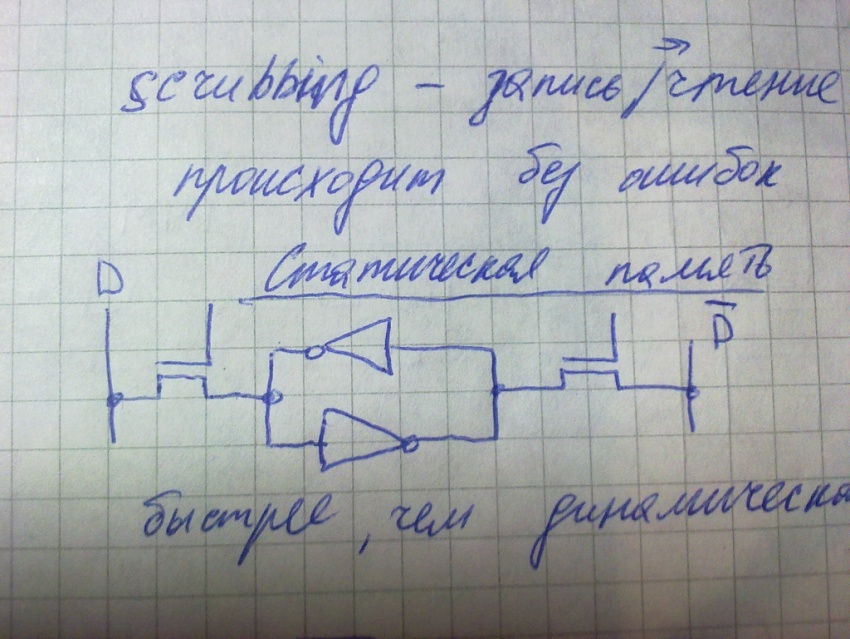 scrubbing – запись/чтение
происходит без ошибок
Статическая память
D
D̅
быстрее, чем динамическа